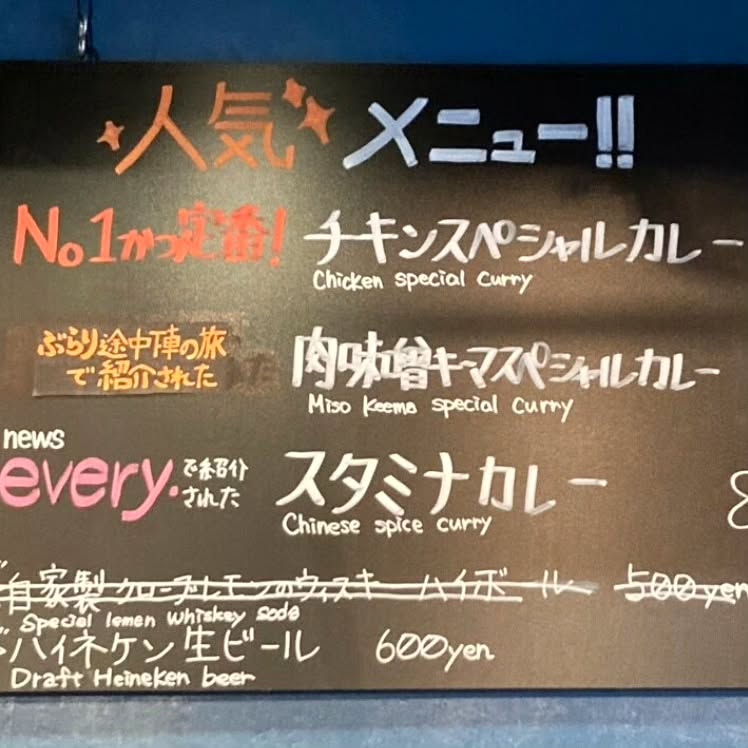 人気メニュー!!
No.1かつ定番! チキンスペシャルカレー
Chicken special curry
ぶらり途中下車の旅
で紹介された
肉味噌キーマスペシャルカレー
Miso Keema special curry
news
every.で紹介
された
スタミナカレー 8
Chinese spice curry
自家製クローブレモンのウィスキーハイボール 500yen
Special lemen whiskey soda
ハイネケン生ビール 600yen
Draft Heineken beer